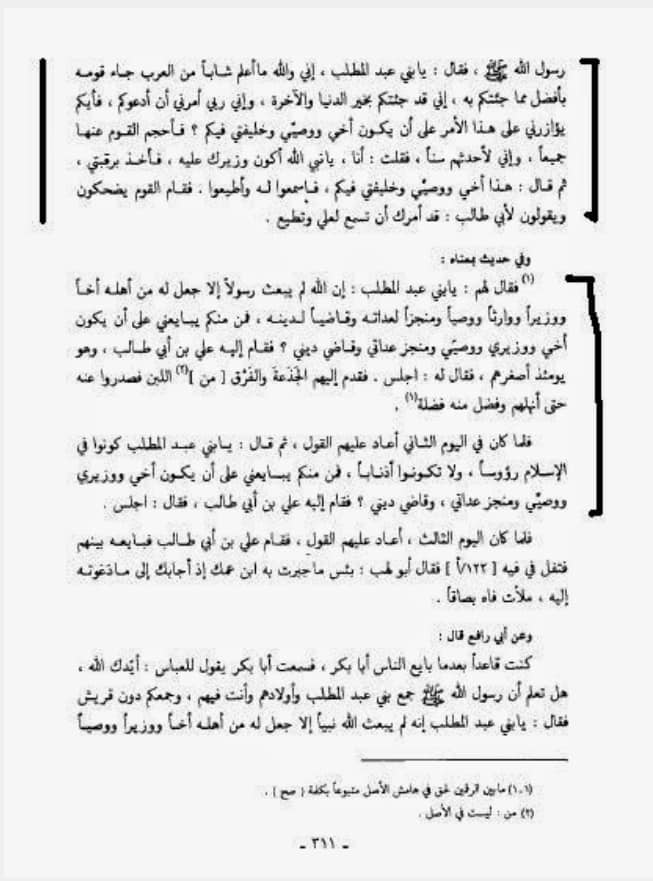 رسول الله ﷺ ، فقال : يابني عبد المطلب ، إني والله ماأعلم شاباً من العرب جاء قومه
بأفضل مما جئتكم به ، إني قد جئتكم بخير الدنيا والآخرة ، وإني ربي أمرني أن أدعوكم ، فأيكم
يؤازرني على هذا الأمر على أن يكون أخي ووصيّي وخليفتي فيكم ؟ فأحجم القوم عنها
جميعاً ، وإني لأحدثهم سناً ، فقلت : أنا ، يانبي الله أكون وزيرك عليه ، فأخذ برقبتي ،
ثم قال : هذا أخي ووصيّي وخليفتي فيكم ، فاسمعوا له وأطيعوا . فقام القوم يضحكون
ويقولون لأبي طالب : قد أمرك أن تسمع لعلي وتطيع .
وفي حديث بمعناه :
(١) فقال لهم : يابني عبد المطلب : إن الله لم يبعث رسولاً إلا جعل له من أهله أخاً
ووزيراً ووارثاً ووصياً ومنجزاً لعداته وقاضياً لدينه ، فمن منكم يبايعني على أن يكون
أخي ووزيري ووصيّي ومنجز عداتي وقاضي ديني ؟ فقام إليه علي بن أبي طالب ، وهو
يومئذ أصغرهم ، فقال له : اجلس . فقدم إليهم الجَذَعةَ والفَرْق [ من ](٢) اللبن فصدروا عنه
حتى أنهلهم وفضل منه فضلة(١) .
فلما كان في اليوم الثاني أعاد عليهم القول ، ثم قال : يابني عبد المطلب كونوا في
الإسلام رؤوساً ، ولا تكونوا أذناباً ، فمن منكم يبايعني على أن يكون أخي ووزيري
ووصيّي ومنجز عداتي ، وقاضي ديني ؟ فقام إليه علي بن أبي طالب ، فقال : اجلس .
فلما كان اليوم الثالث ، أعاد عليهم القول ، فقام علي بن أبي طالب فبايعه بينهم
فتفل في فيه [ ١٢٢/أ ] فقال أبو لهب : بئس ماجبرت به ابن عمك إذ أجابك إلى مادعوته
إليه ، ملأت فاه بصاقاً .
وعن أبي رافع قال :
كنت قاعداً بعدما بايع الناس أبا بكر ، فسمعت أبا بكر يقول للعباس : أيّدك الله ،
هل تعلم أن رسول الله ﷺ جمع بني عبد المطلب وأولادهم وأنت فيهم ، وجمعكم دون قريش
فقال : يابني عبد المطلب إنه لم يبعث الله نبياً إلا جعل له من أهله أخاً ووزيراً ووصياً
(١-١) مابين الرقمين لحق في هامش الأصل متبوعاً بكلمة ( صح ) .
(٢) من : ليست في الأصل .
- ٣١١ -